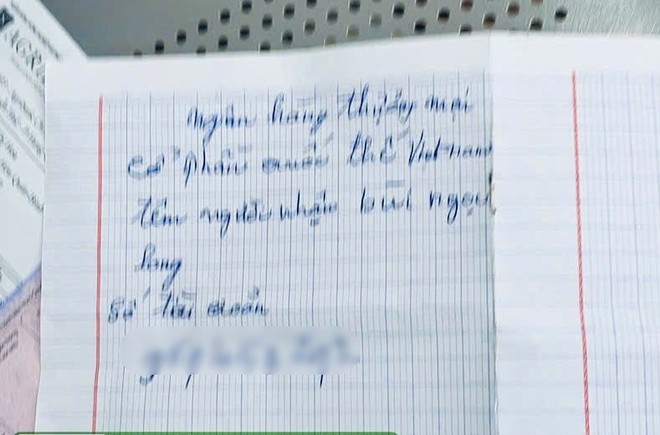 AGRI
ngân hàng thương mại
cổ phần quốc thế Việt nam
tên người nhận bùi ngọc
long
số tài quản